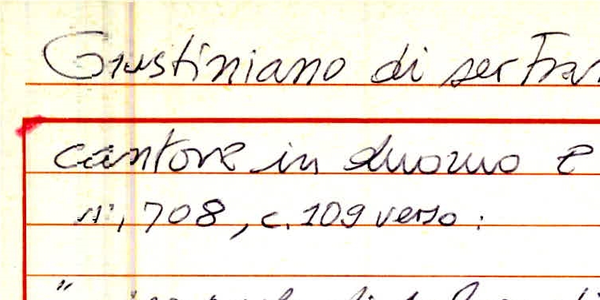 Giustiniano di ser Fran
cantore in duomo e
n. 708, c. 109 verso:
"